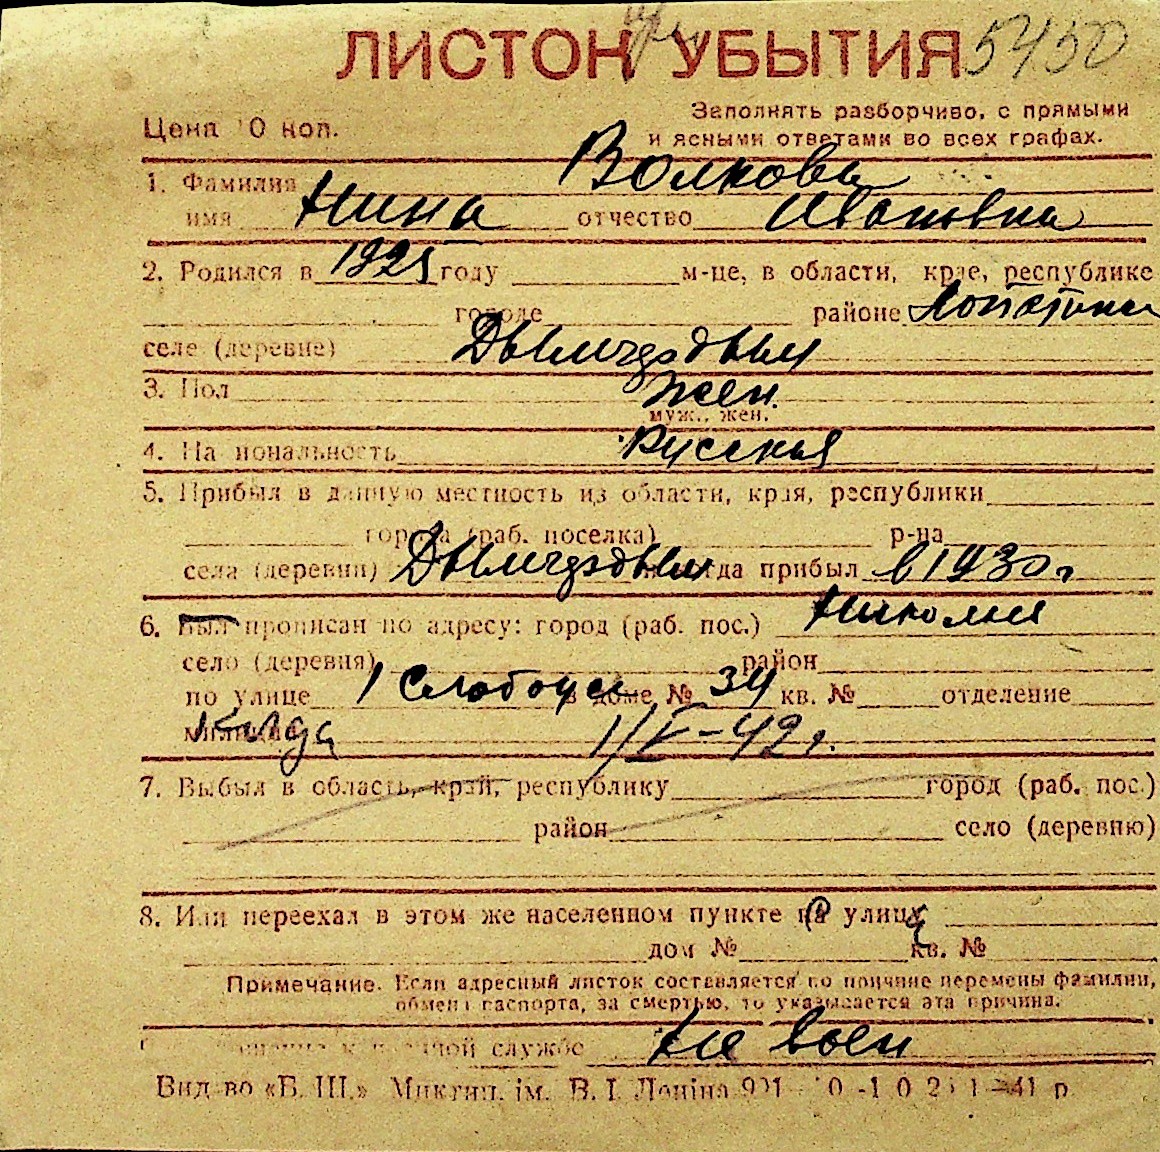 ЛИСТОК УБЫТИЯ 5450
Заполнять разборчиво, с прямыми
Цена 10 коп. и ясными ответами во всех графах.
1. Фамилия Волкова
имя Нина отчество Ивановна
2. Родился в 1925 году м-це, в области, крае, республике
городе районе
селе (деревне)
3. Пол жен.
муж., жен.
4. Национальность Русская
5. Прибыл в данную местность из области, края, республики
города (раб. поселка) р-на
села (деревни) когда прибыл в 1930 г.
6. Был прописан по адресу: город (раб. пос.)
село (деревня) район
по улице 1 Слободск в доме № 34 кв. № отделение
милиции 1/V-42 г.
7. Выбыл в область, край, республику город (раб. пос.)
район село (деревню)
8. Или переехал в этом же населенном пункте на улицу
дом № кв. №
Примечание. Если адресный листок составляется по причине перемены фамилии,
обмена паспорта, за смертью, то указывается эта причина.
к военной службе не воен
Вид-во «Б. Ш.» Миктип. ім. В. І. Леніна